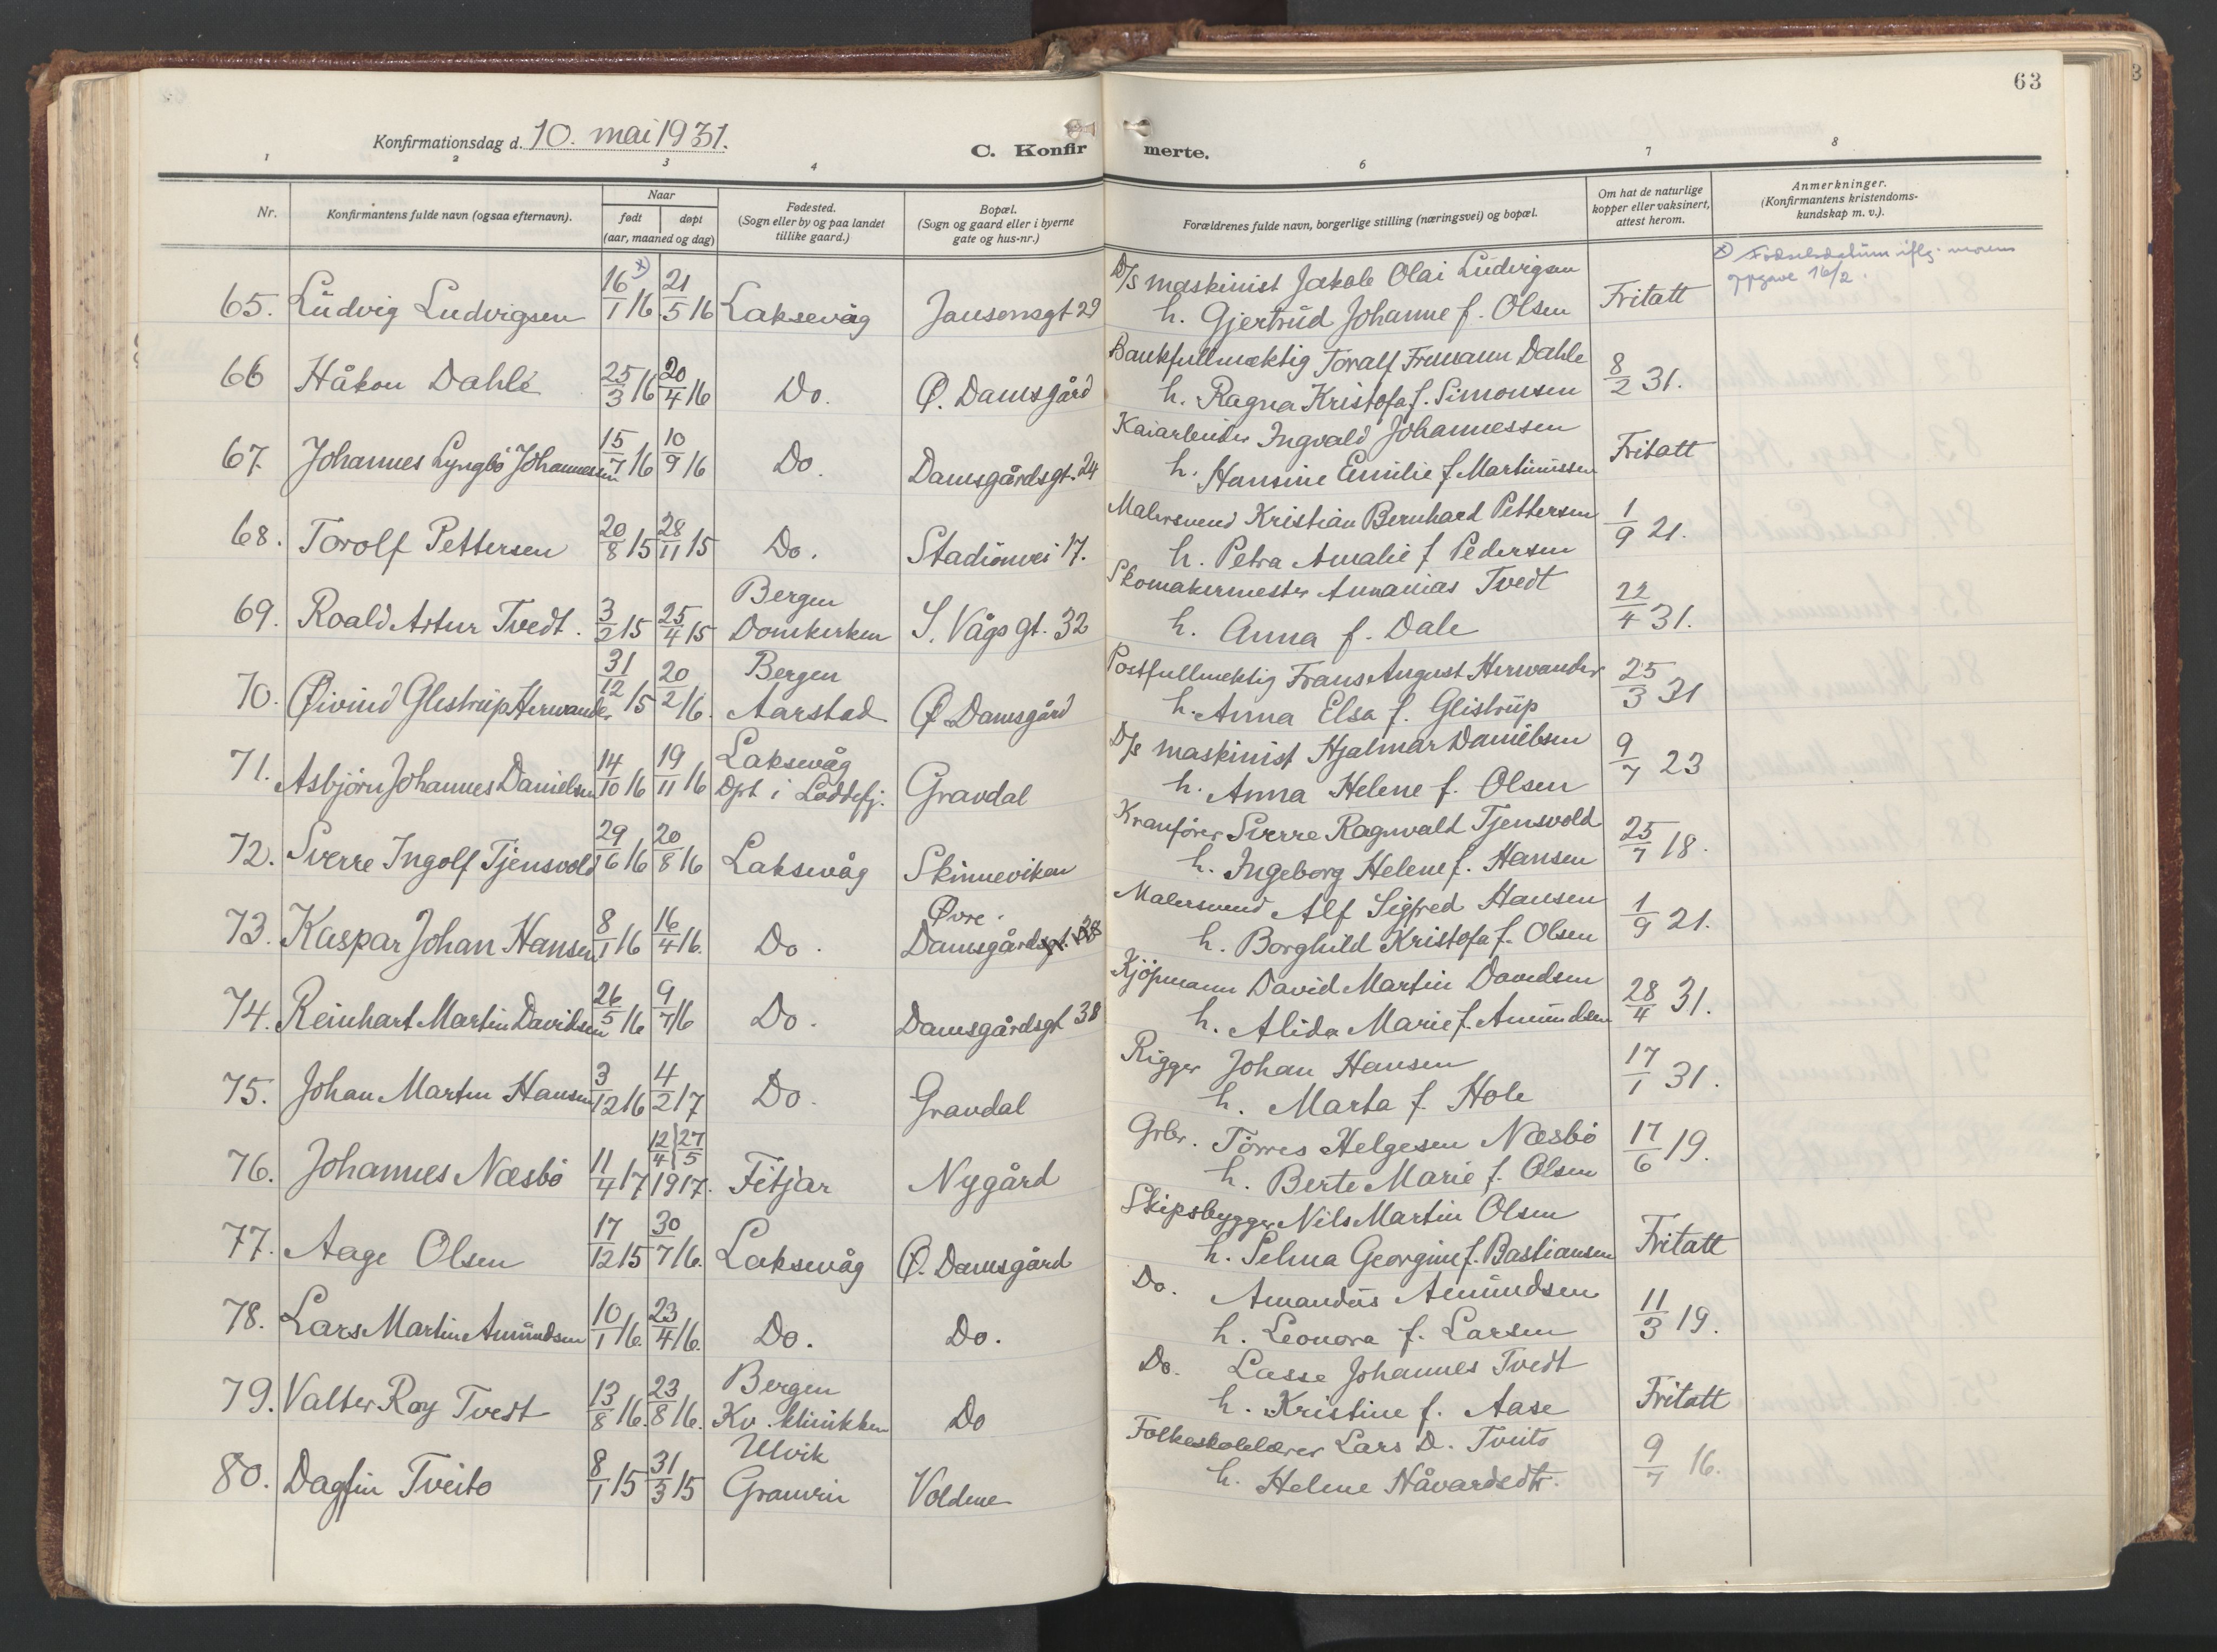 63
Konfirmationsdag d. 10. mai 1931.
C. Konfirmerte.
1 2 3 4 6 7 8
Nr.
Konfirmantens fulde navn (ogsaa efternavn).
Naar
født døpt
(aar, maaned og dag)
Fødested.
(Sogn eller by og paa landet
tillike gaard.)
Bopæl.
(Sogn og gaard eller i byerne
gate og hus-nr.)
Forældrenes fulde navn, borgerlige stilling (næringsvei) og bopæl.
Om hat de naturlige
kopper eller vaksinert,
attest herom.
Anmerkninger.
(Konfirmantens kristendoms-
kundskap m. v.).
x) Fødselsdatum iflg. morens
oppgave 16/2.
65. Ludvig Ludvigsen 16/1 16 x) 21/5 16 Laksevåg Jansonsgt 29
D/s maskinist Jakob Olai Ludvigsen
h. Gjertrud Johanne f. Olsen Fritatt
66 Håkon Dahle 25/3 16 20/4 16 Do. Ø. Damsgård
Bankfullmektig Toralf Fremann Dahle
h. Ragna Kristofa f. Simonsen 8/2 31.
67. Johannes Lyngbö Johannessen 15/7 16 10/9 16 Do. Damsgårdsgt. 24
Kaiarbeider Ingvald Johannessen
h. Hansine Emilie f. Martinussen Fritatt
68. Torolf Pettersen 20/8 15 28/11 15 Do. Stadionvei 17.
Malersvend Kristian Bernhard Pettersen
h. Petra Amalie f. Pedersen 1/9 21.
69. Roald Artur Tvedt. 3/2 15 25/4 15 Bergen
Domkirken S. Vågs gt. 32
Skomakermester Annanias Tvedt
h. Anna f. Dale 22/4 31.
70. Øivind Glistrup Herwander 31/12 15 20/2 16. Bergen
Aarstad Ø. Damsgård
Postfullmektig Frans August Herwander
h. Anna Elsa f. Glistrup 25/3 31
71. Asbjörn Johannes Danielsen 14/10 16 19/11 16 Laksevåg
Döpt i Loddefj. Gravdal
D/s maskinist Hjalmar Danielsen
h. Anna Helene f. Olsen 9/7 23
72. Sverre Ingolf Tjensvold 29/6 16 20/8 16 Laksevåg Skinneviken
Kranförer Sverre Ragnvald Tjensvold
h. Ingeborg Helene f. Hansen 25/7 18.
73. Kaspar Johan Hansen 8/1 16 16/4 16. Do. Øvre
Damsgårdsgt. 38
Malersvend Alf Sigfred Hansen
h. Borghild Kristofa f. Olsen 1/9 21.
74. Reinhart Martin Davidsen 26/5 16 9/7 16 Do. Damsgårdsgt 38
Kjöpmann David Martin Davidsen
h. Alida Marie f. Amundsen 28/4 31.
75. Johan Martin Hansen 3/12 16 4/2 17 Do. Gravdal
Rigger Johan Hansen
h. Marta f. Hole 17/1 31.
76. Johannes Næsbö 11/4 17 12/4 } 27/5 1917. Fitjar Nygård
Grbr. Törres Helgesen Næsbö
h. Berte Marie f. Olsen 17/6 19.
77. Aage Olsen 17/12 15 30/7 16. Laksevåg Ø. Damsgård
Skipsbygger Nils Martin Olsen
h. Selma Georgine f. Bastiansen Fritatt
78. Lars Martin Amundsen 10/1 16. 23/4 16. Do. Do.
Do. Amandus Amundsen
h. Leonora f. Larsen 11/3 19.
79. Valter Roy Tvedt 13/8 16. 23/8 16. Bergen
Kv. klinikken Do
Do. Lasse Johannes Tvedt
h. Kristine f. Aase Fritatt
80. Dagfin Tveito 8/1 15 31/3 15 Ulvik
Granvin Voldene
Folkeskolelærer Lars D. Tveito
h. Helene Håvardsdtr. 9/7 16.